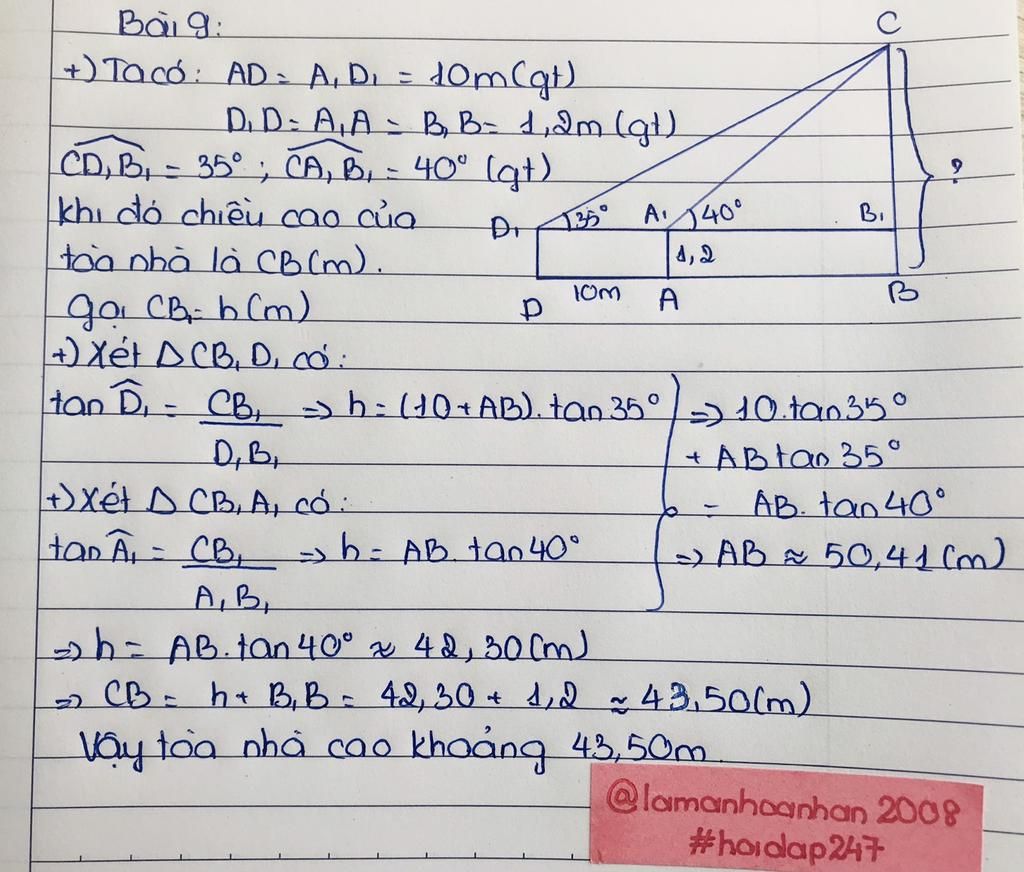 Bài 9:
+) Ta có: AD = A₁D₁ = 10m (gt)
D₁D = A₁A = B₁B = 1,2m (gt)
CD₁B₁ = 35° ; CA₁B₁ = 40° (gt)
khi đó chiều cao của
tòa nhà là CB (m).
gọi CB₁ = h (m)
C
?
D₁ 35° A₁ 40° B₁
1,2
D 10m A B
+) Xét Δ CB₁D₁ có:
tan D̂₁ = CB₁/D₁B₁ => h = (10 + AB). tan 35°
+) Xét Δ CB₁A₁ có:
tan Â₁ = CB₁/A₁B₁ => h = AB. tan 40°
=> 10. tan 35°
+ AB tan 35°
= AB. tan 40°
=> AB ≈ 50,41 (m)
=> h = AB. tan 40° ≈ 42,30 (m)
=> CB = h + B₁B = 42,30 + 1,2 ≈ 43,50 (m)
Vậy tòa nhà cao khoảng 43,50m.
@lamanhoanhan 2008
#hoidap247